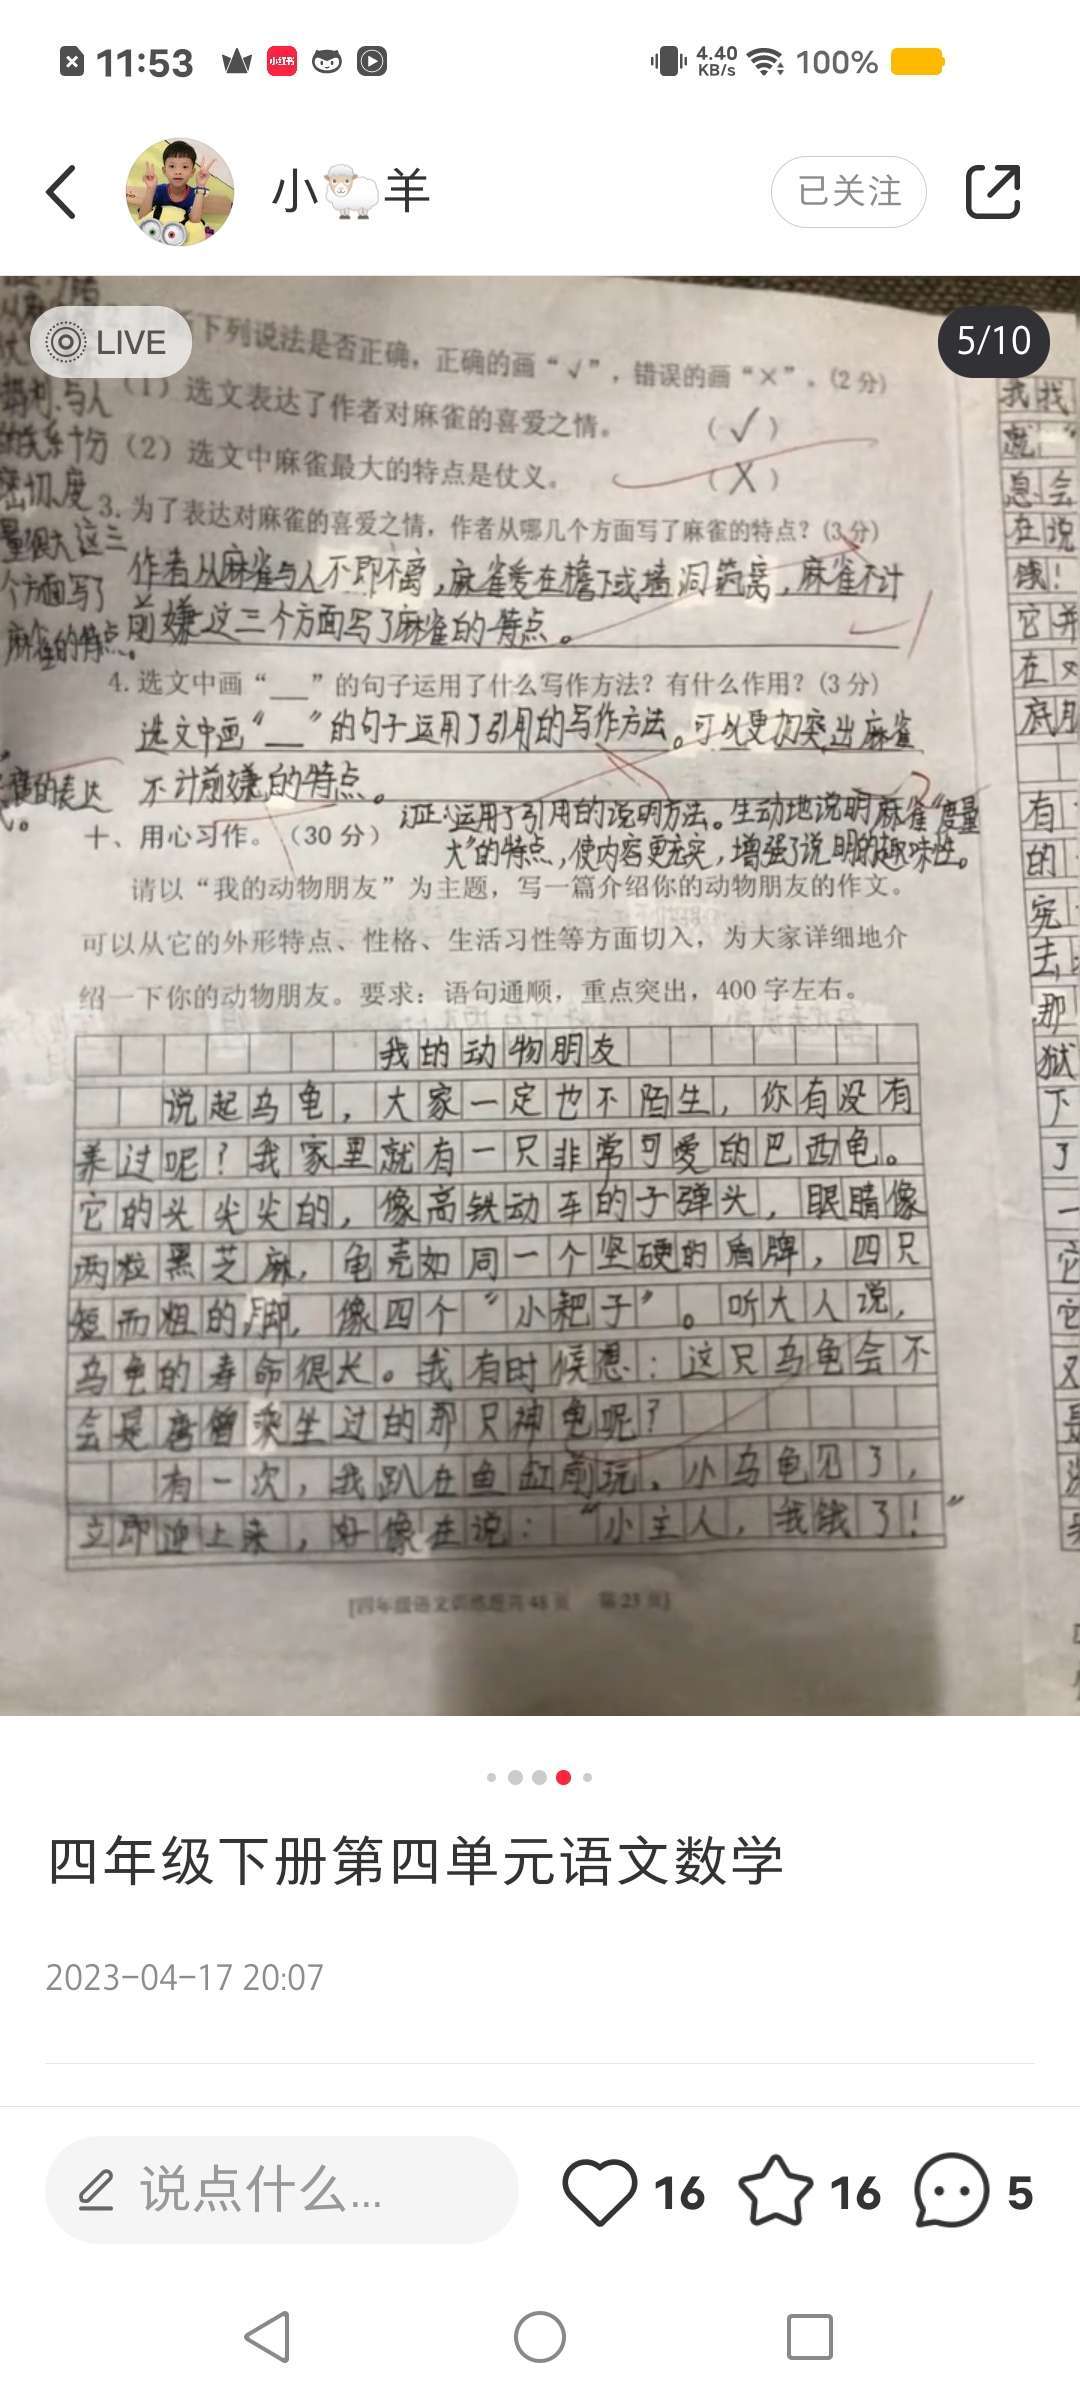 11:53
小红书
4.40
KB/s
100%
小羊
已关注
LIVE
5/10
下列说法是否正确，正确的画“√”，错误的画“×”。(2分)
(1) 选文表达了作者对麻雀的喜爱之情。 (√)
(2) 选文中麻雀最大的特点是仗义。 (X)
与人
的关系十分
密切、度
量很大这三
个方面写了
麻雀的特点。
3. 为了表达对麻雀的喜爱之情，作者从哪几个方面写了麻雀的特点？(3分)
作者从麻雀与人不即不离，麻雀爱在檐下或墙洞筑窝，麻雀不计
前嫌这三个方面写了麻雀的特点。
4. 选文中画“___”的句子运用了什么写作方法？有什么作用？(3分)
选文中画“__”的句子运用了引用的写作方法。可以更加突出麻雀
不计前嫌的特点。
的表达
订正：运用了引用的说明方法。生动地说明麻雀“度量
大”的特点，使内容更充实，增强了说明的趣味性。
十、用心习作。（30分）
请以“我的动物朋友”为主题，写一篇介绍你的动物朋友的作文。
可以从它的外形特点、性格、生活习性等方面切入，为大家详细地介
绍一下你的动物朋友。要求：语句通顺，重点突出，400字左右。
我的动物朋友
说起乌龟，大家一定也不陌生，你有没有
养过呢？我家里就有一只非常可爱的巴西龟。
它的头尖尖的，像高铁动车的子弹头，眼睛像
两粒黑芝麻，龟壳如同一个坚硬的盾牌，四只
短而粗的脚，像四个“小耙子”。听大人说，
乌龟的寿命很长。我有时候想：这只乌龟会不
会是唐僧乘坐过的那只神龟呢？
有一次，我趴在鱼缸前玩，小乌龟见了，
立即迎上来，好像在说：“小主人，我饿了！”
我找
息会
在说
饿！
它并
在
底
有
的
究
去，
那
狱
下
了
一
它
它
又
四年级下册第四单元语文数学
2023-04-17 20:07
说点什么...
16
16
5